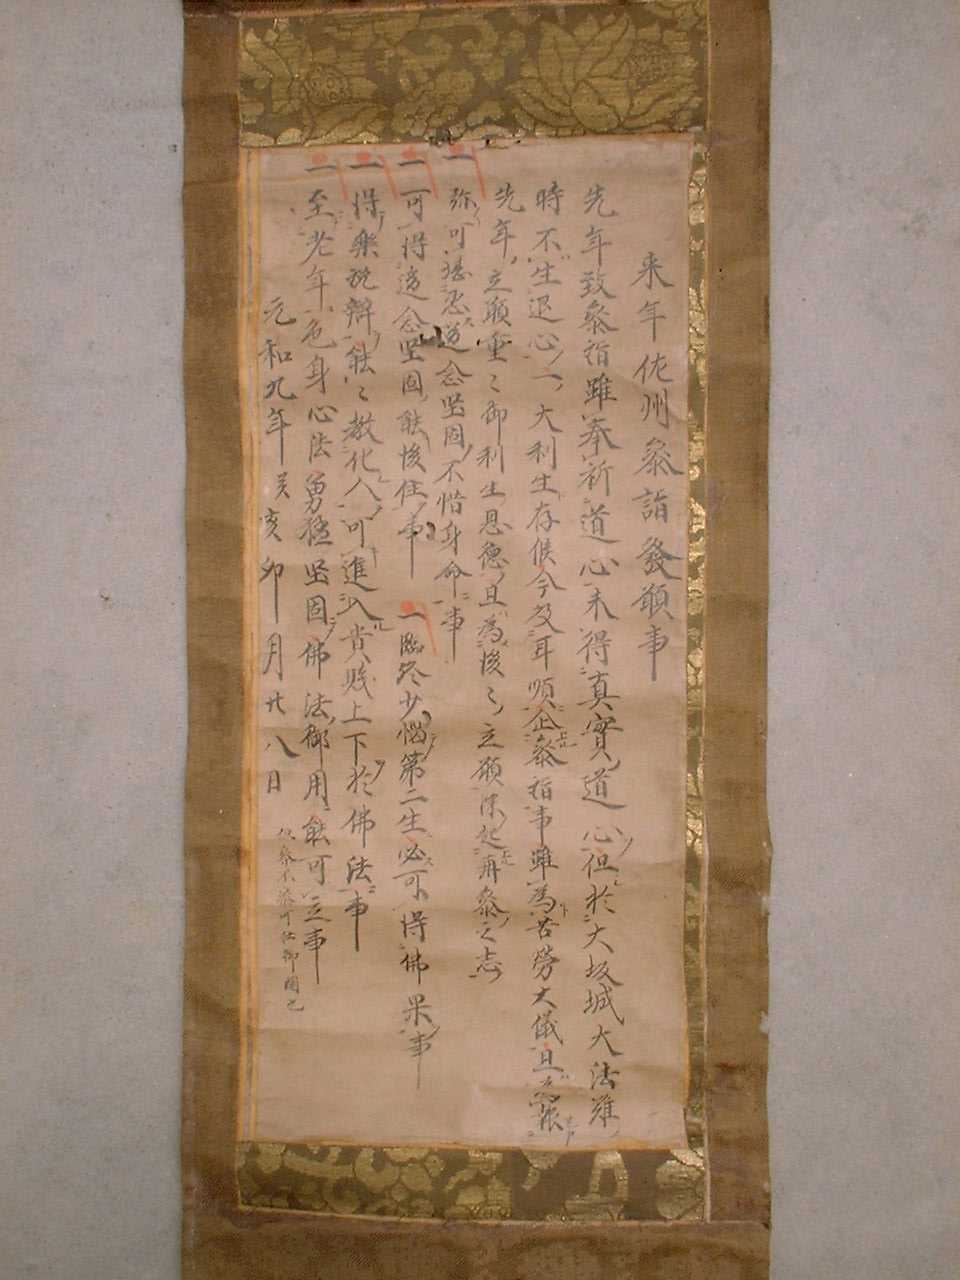 来年佐州参詣發願事
先年致参詣雖奉祈道心未得真實道心但於大坂城大法難
時不生退心一大利生存候今及耳順企参詣事雖為苦勞大儀且為報
先年立願重々御利生恩德且為後々立願深起再参之志
一 弥可堪忍道念堅固不惜身命事
一 可得道念堅固能後住事 一 臨終少悩第二生必可得佛果事
一 得樂説辯能々教化人可進入貴賤上下於佛法事
一 至老年色身心法勇猛堅固佛法御用能可立事
元和九年癸亥卯月廿八日